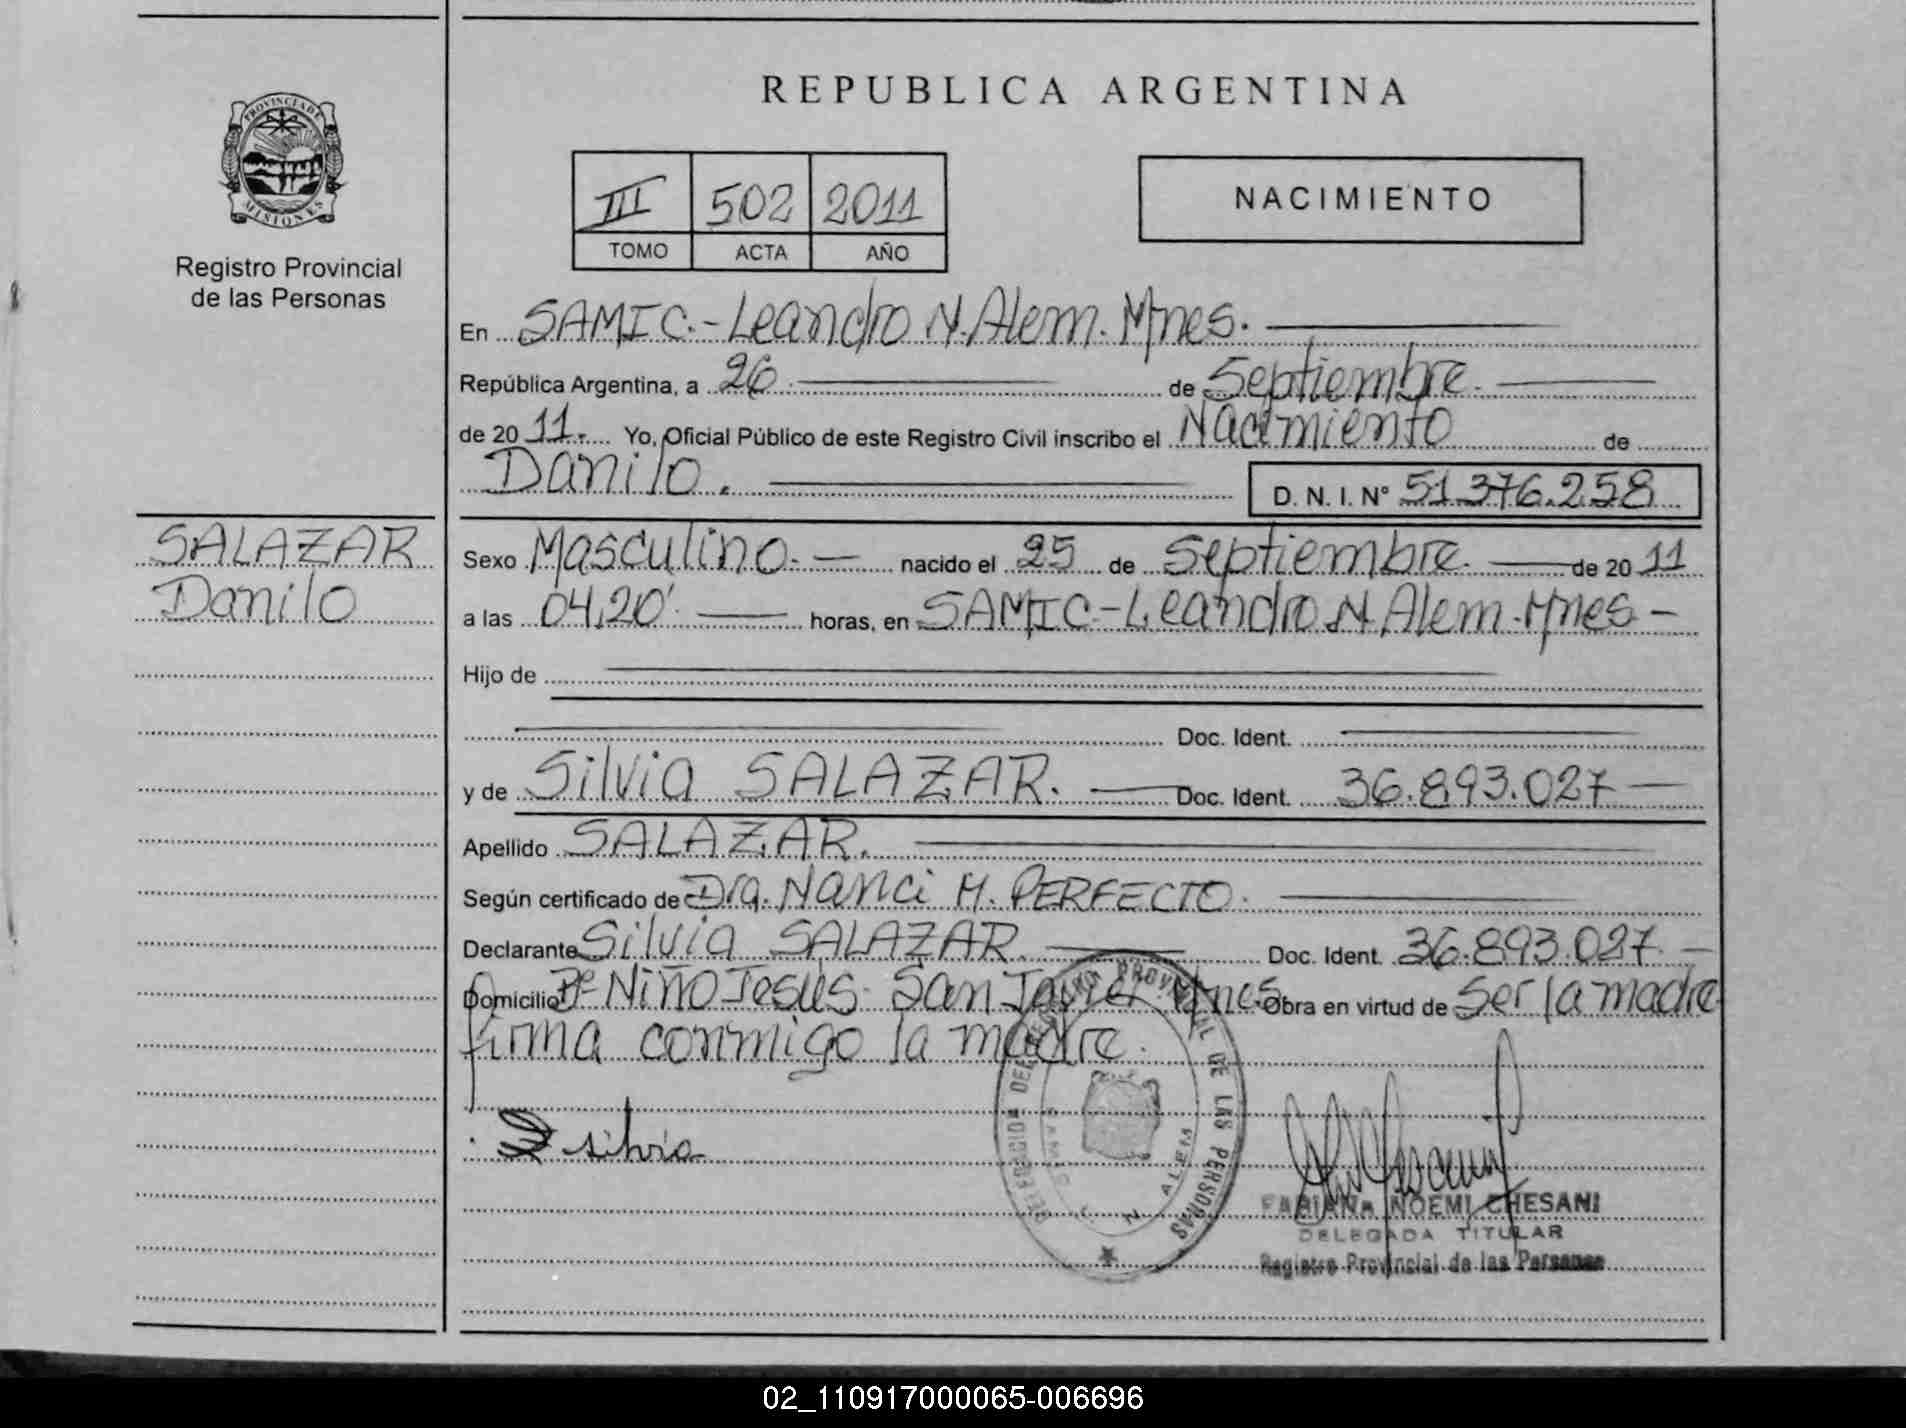 REPUBLICA ARGENTINA
PROVINCIA DE
MISIONES
Registro Provincial
de las Personas
III 502 2011
TOMO ACTA AÑO
NACIMIENTO
En SAMIC.-Leandro N. Alem. Mnes.
República Argentina, a 26 de Septiembre.
de 2011. Yo, Oficial Público de este Registro Civil inscribo el Nacimiento de
Danilo. D. N. I. N° 51.376.258
SALAZAR
Danilo
Sexo Masculino. nacido el 25 de Septiembre. de 2011
a las 04,20' horas, en SAMIC-Leandro N. Alem. Mnes-
Hijo de
Doc. Ident.
y de Silvia SALAZAR. Doc. Ident. 36.893.027
Apellido SALAZAR.
Según certificado de Dra. Nanci M. PERFECTO.
Declarante Silvia SALAZAR. Doc. Ident. 36.893.027.
Domicilio Niño Jesús. San Javier Mnes Obra en virtud de Ser la madre
firma conmigo la madre.
silvia
DELEGACION DEL REGISTRO PROVINCIAL DE LAS PERSONAS
SAMIC L. N. ALEM
FABIANA NOEMI CHESANI
DELEGADA TITULAR
Registro Provincial de las Personas
02_110917000065-006696